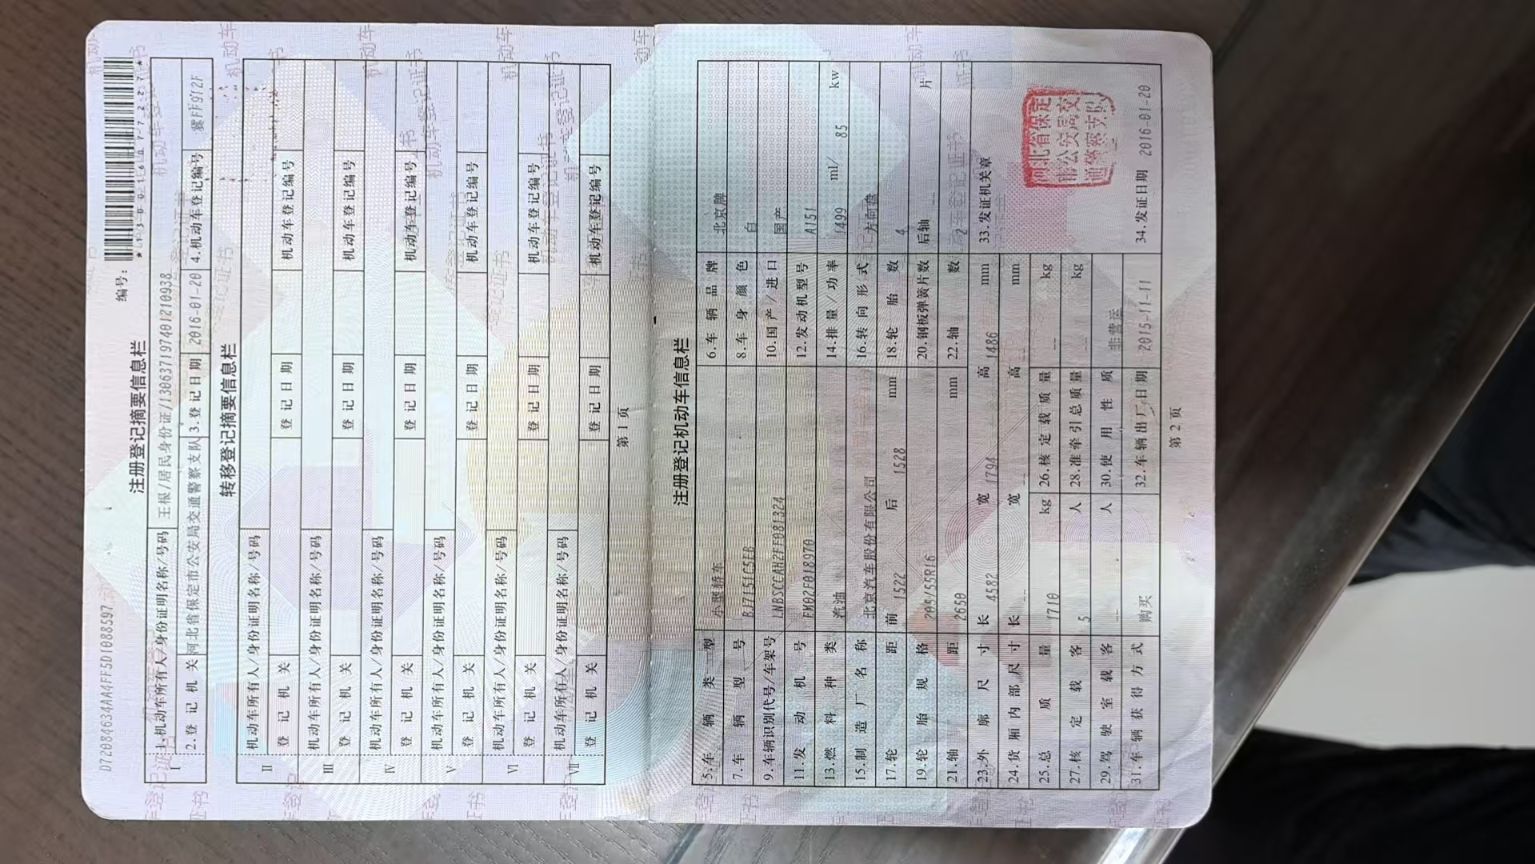 D72084634AA4FF5D1088597.
编号:
注册登记摘要信息栏
Ⅰ 1.机动车所有人/身份证明名称/号码 王根/居民身份证/130637197401210938
2.登记机关 河北省保定市公安局交通警察支队 3.登记日期 2016-01-20 4.机动车登记编号 冀FF912F
转移登记摘要信息栏
Ⅱ 机动车所有人/身份证明名称/号码
登记机关 登记日期 机动车登记编号
Ⅲ 机动车所有人/身份证明名称/号码
登记机关 登记日期 机动车登记编号
Ⅳ 机动车所有人/身份证明名称/号码
登记机关 登记日期 机动车登记编号
Ⅴ 机动车所有人/身份证明名称/号码
登记机关 登记日期 机动车登记编号
Ⅵ 机动车所有人/身份证明名称/号码
登记机关 登记日期 机动车登记编号
Ⅶ 机动车所有人/身份证明名称/号码
登记机关 登记日期 机动车登记编号
第 1 页
注册登记机动车信息栏
5.车辆类型 小型轿车 6.车辆品牌 北京牌
7.车辆型号 BJ7151C5EB 8.车身颜色 白
9.车辆识别代号/车架号 LNBSCCAH2FF081324 10.国产/进口 国产
11.发动机号 12.发动机型号 A151
13.燃料种类 汽油 14.排量/功率 1499 ml/ 85 kw
15.制造厂名称 北京汽车股份有限公司 16.转向形式 方向盘
17.轮距 前 1522 后 1528 mm 18.轮胎数 4
19.轮胎规格 205/55R16 20.钢板弹簧片数 后轴 -- 片
21.轴距 2650 mm 22.轴数 2
23.外廓尺寸 长 4582 宽 1794 高 1486 mm 33.发证机关章
河北省保定
市公安局交
通警察支队
24.货厢内部尺寸 长 -- 宽 -- 高 -- mm
25.总质量 1710 kg 26.核定载质量 -- kg
27.核定载客 5 人 28.准牵引总质量 -- kg
29.驾驶室载客 -- 人 30.使用性质 非营运
31.车辆获得方式 购买 32.车辆出厂日期 2015-11-11 34.发证日期 2016-01-20
第 2 页